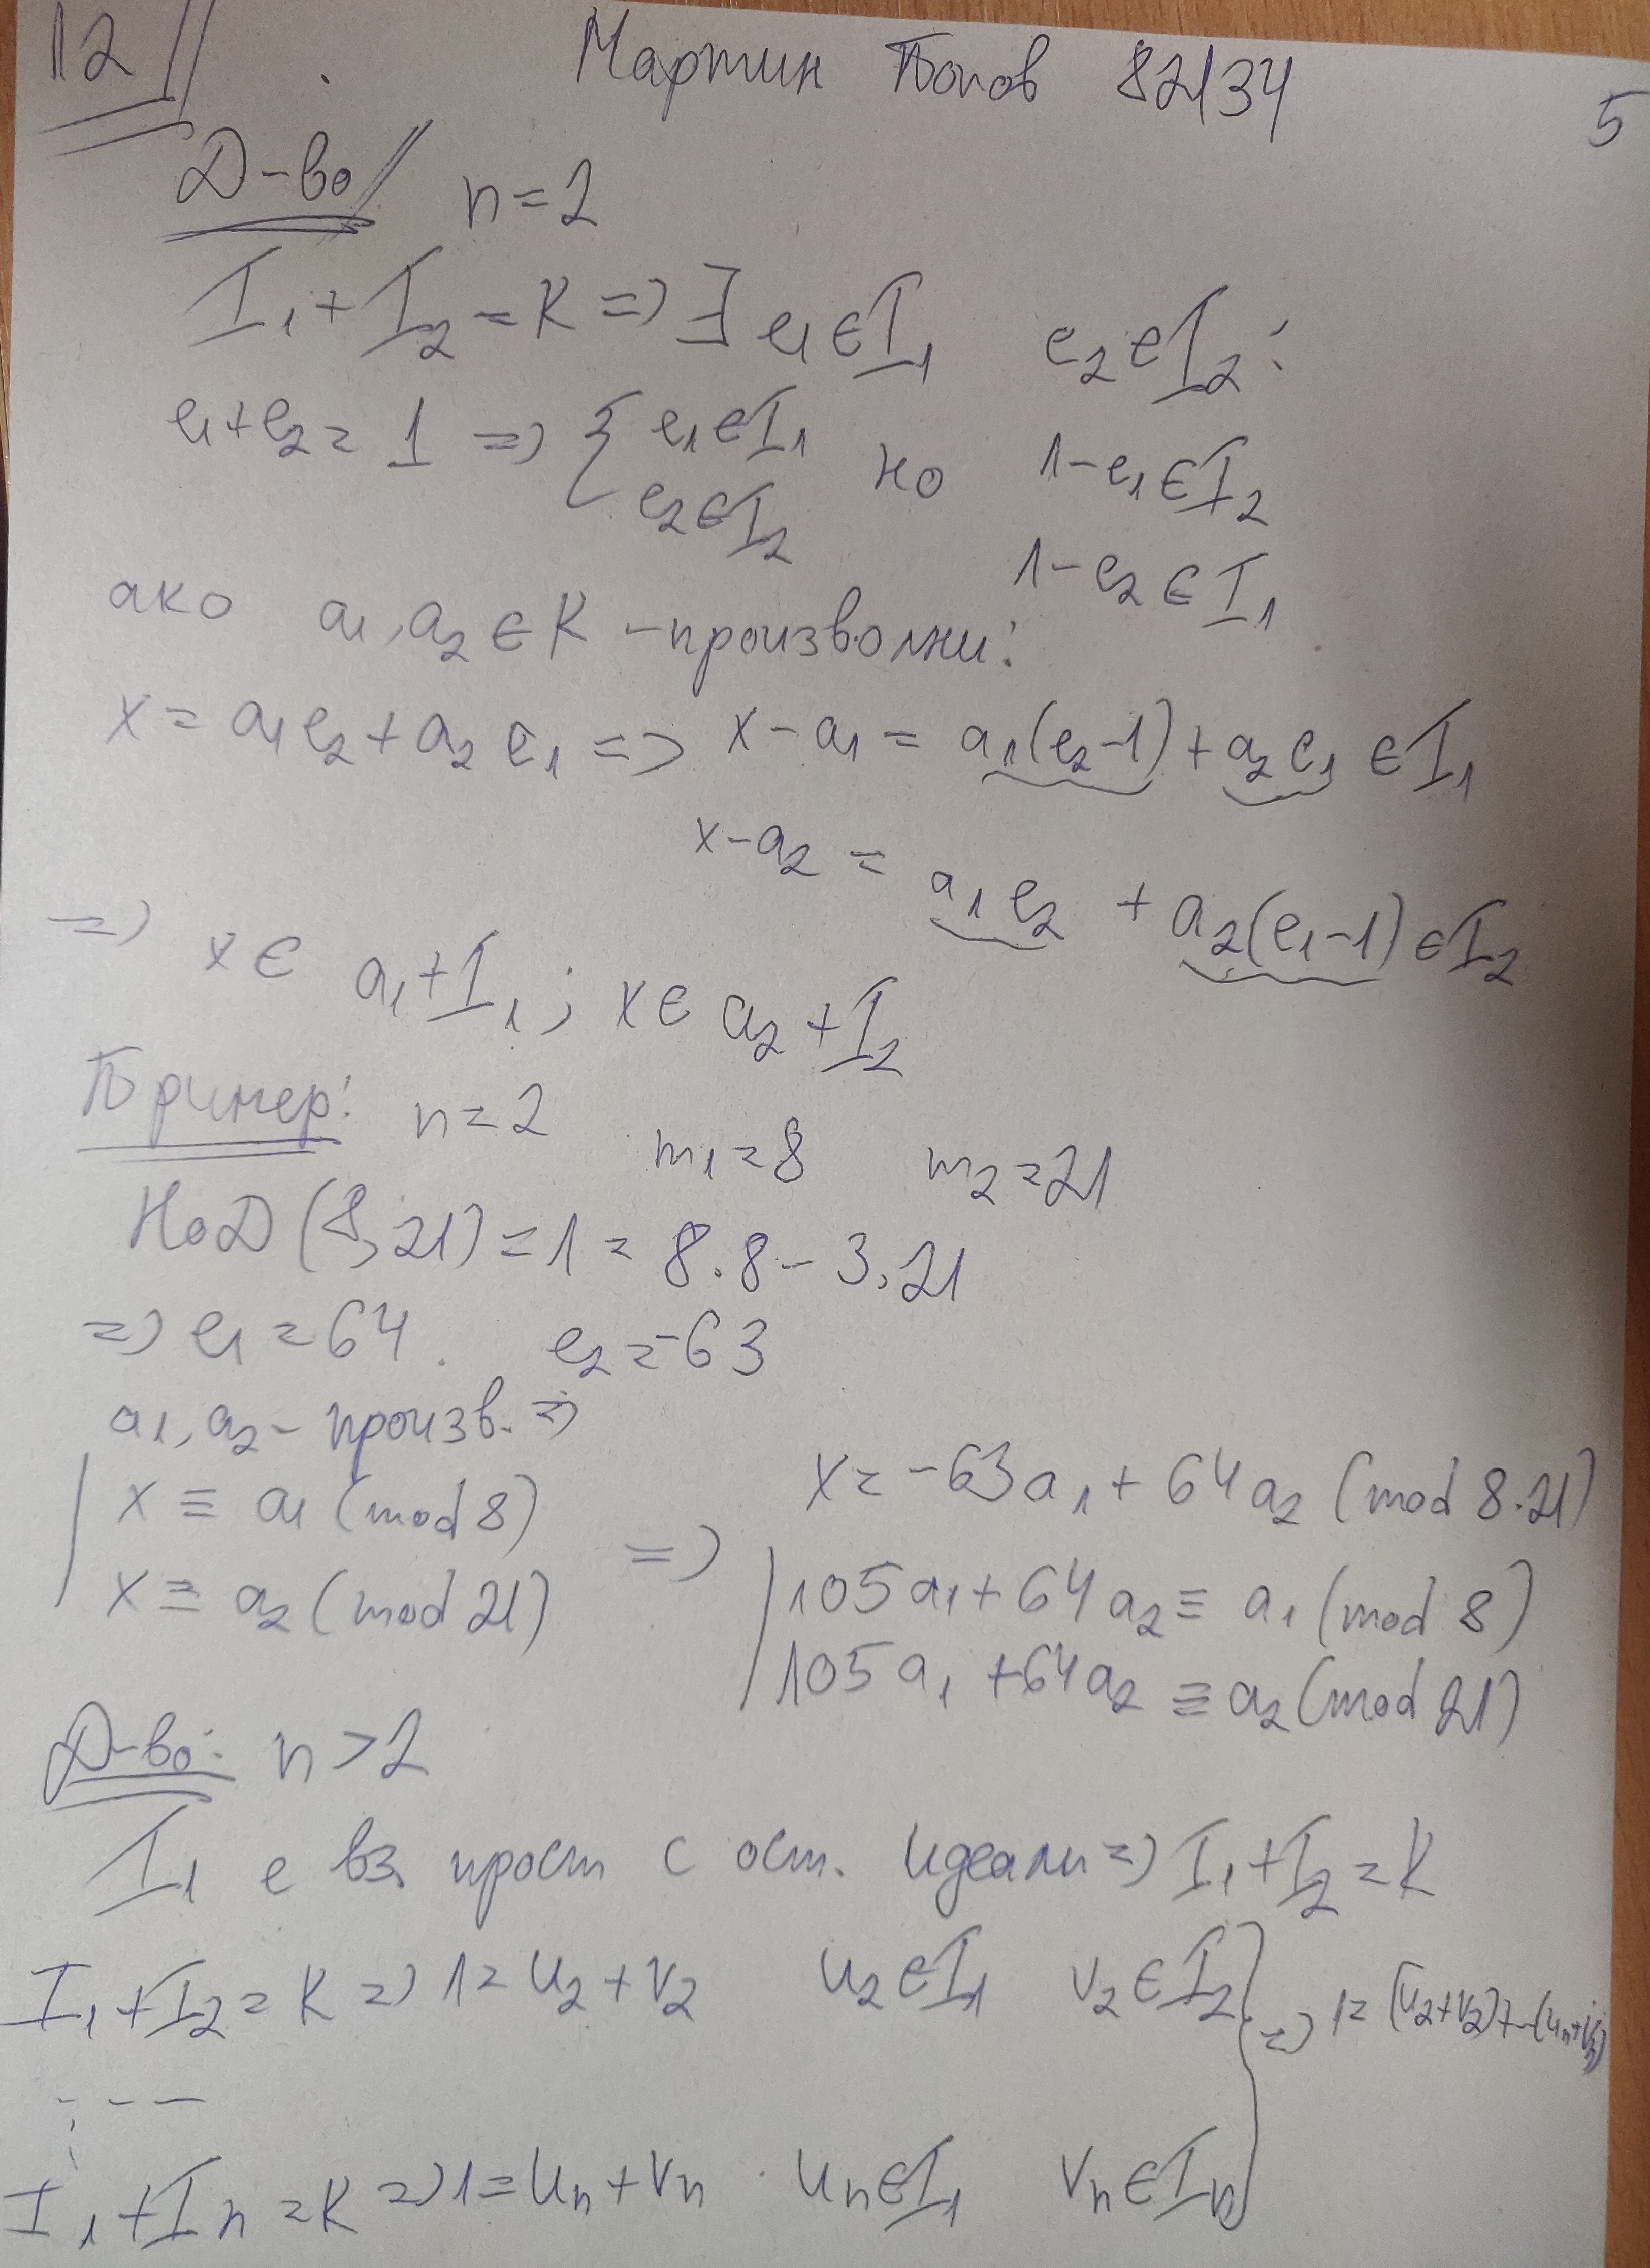 12 Мартин Попов 82134 5
Д-во n=2
I₁+I₂=K => ∃ e₁∈I₁ e₂∈I₂:
e₁+e₂=1 => { e₁∈I₁ но 1-e₁∈I₂
e₂∈I₂ 1-e₂∈I₁
ако a₁,a₂∈K -произволни:
x=a₁e₂+a₂e₁ => x-a₁=a₁(e₂-1)+a₂e₁∈I₁
x-a₂=a₁e₂+a₂(e₁-1)∈I₂
=> x∈a₁+I₁; x∈a₂+I₂
Пример: n=2 m₁=8 m₂=21
НоД(8,21)=1=8.8-3.21
=> e₁=64. e₂=-63
a₁,a₂-произв. =>
x≡a₁(mod 8) x=-63a₁+64a₂(mod 8.21)
x≡a₂(mod 21) => 105a₁+64a₂≡a₁(mod 8)
105a₁+64a₂≡a₂(mod 21)
Д-во: n>2
I₁ е вз. прост с ост. идеали => I₁+I₂=K
I₁+I₂=K => 1=u₂+v₂ u₂∈I₁ v₂∈I₂ } => 1=(u₂+v₂)+--(uₙ+vₙ)
⋮ ---
I₁+Iₙ=K => 1=uₙ+vₙ uₙ∈I₁ vₙ∈Iₙ